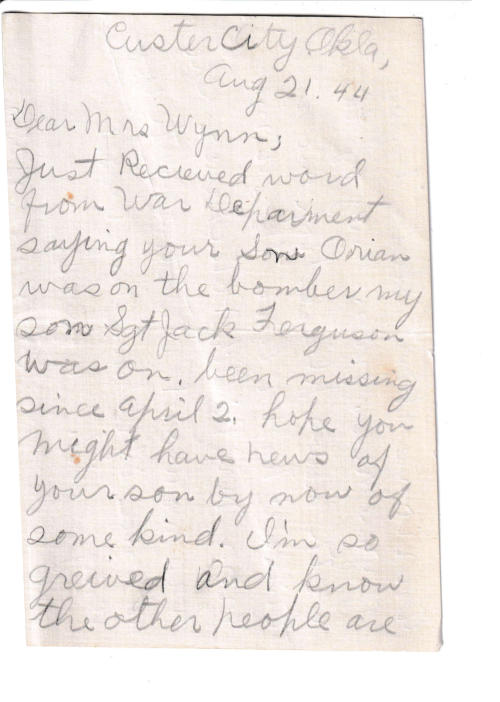 Custer City Okla,
Aug 21. 44
Dear Mrs Wynn,
Just Recieved word
from War Deparment
saying your Son Orian
was on the bomber my
son Sgt Jack Ferguson
was on, been missing
since april 2. hope you
might have news of
your son by now of
some kind. I'm so
greived and know
the other people are